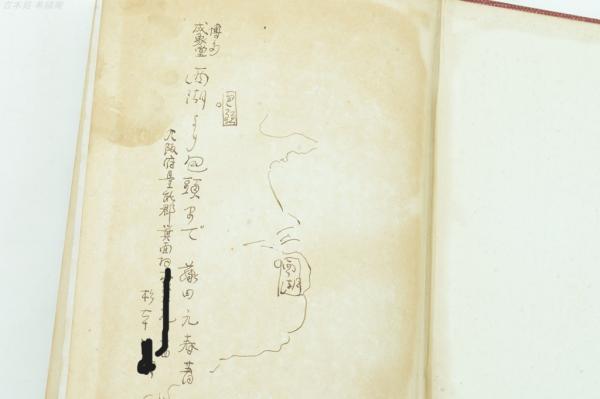 包頭
西湖
博多
成象堂
西湖より包頭まで 藤田元春著
大阪府豊能郡箕面村